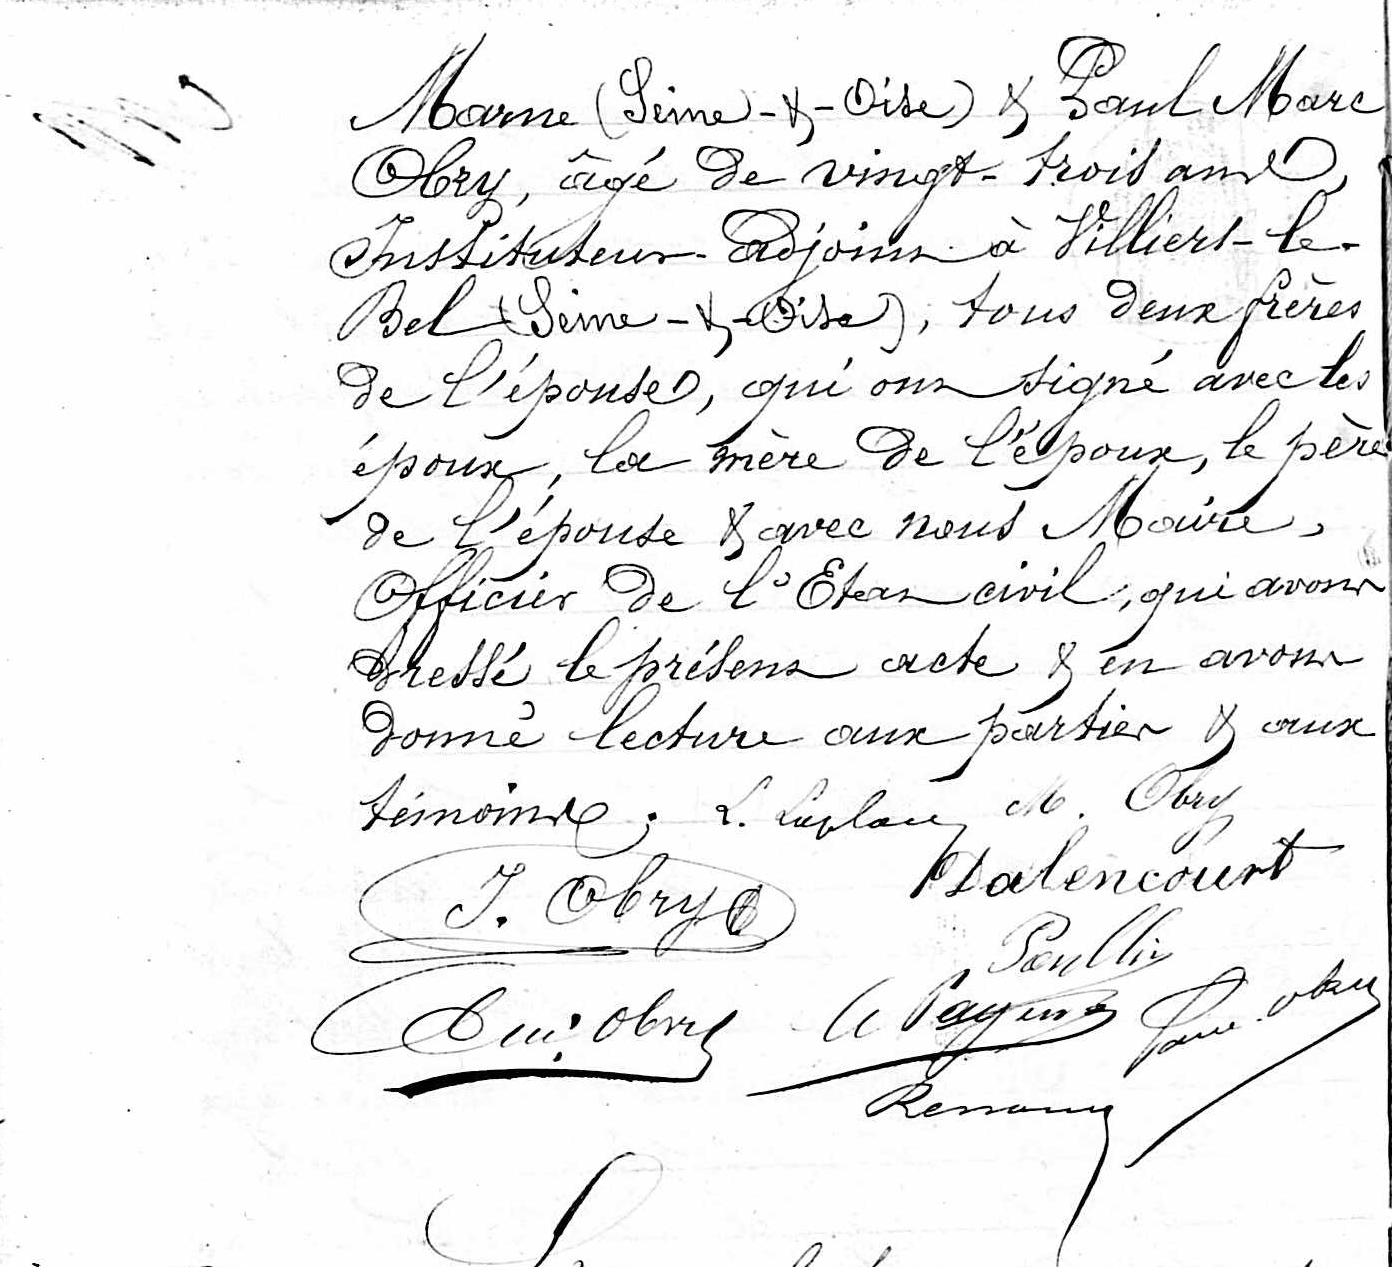 Marne (Seine-&-Oise) & Paul Marc
Obry, âgé de vingt-trois ans,
Instituteur-adjoint à Villiers-le-
Bel (Seine-&-Oise), tous deux frères
de l'épouse, qui ont signé avec les
époux, la mère de l'époux, le père
de l'épouse & avec nous Maire,
Officier de l'Etat civil, qui avons
dressé le présent acte & en avons
donné lecture aux parties & aux
témoins. L. M. Obry
J. Obry Dalencourt
Obry